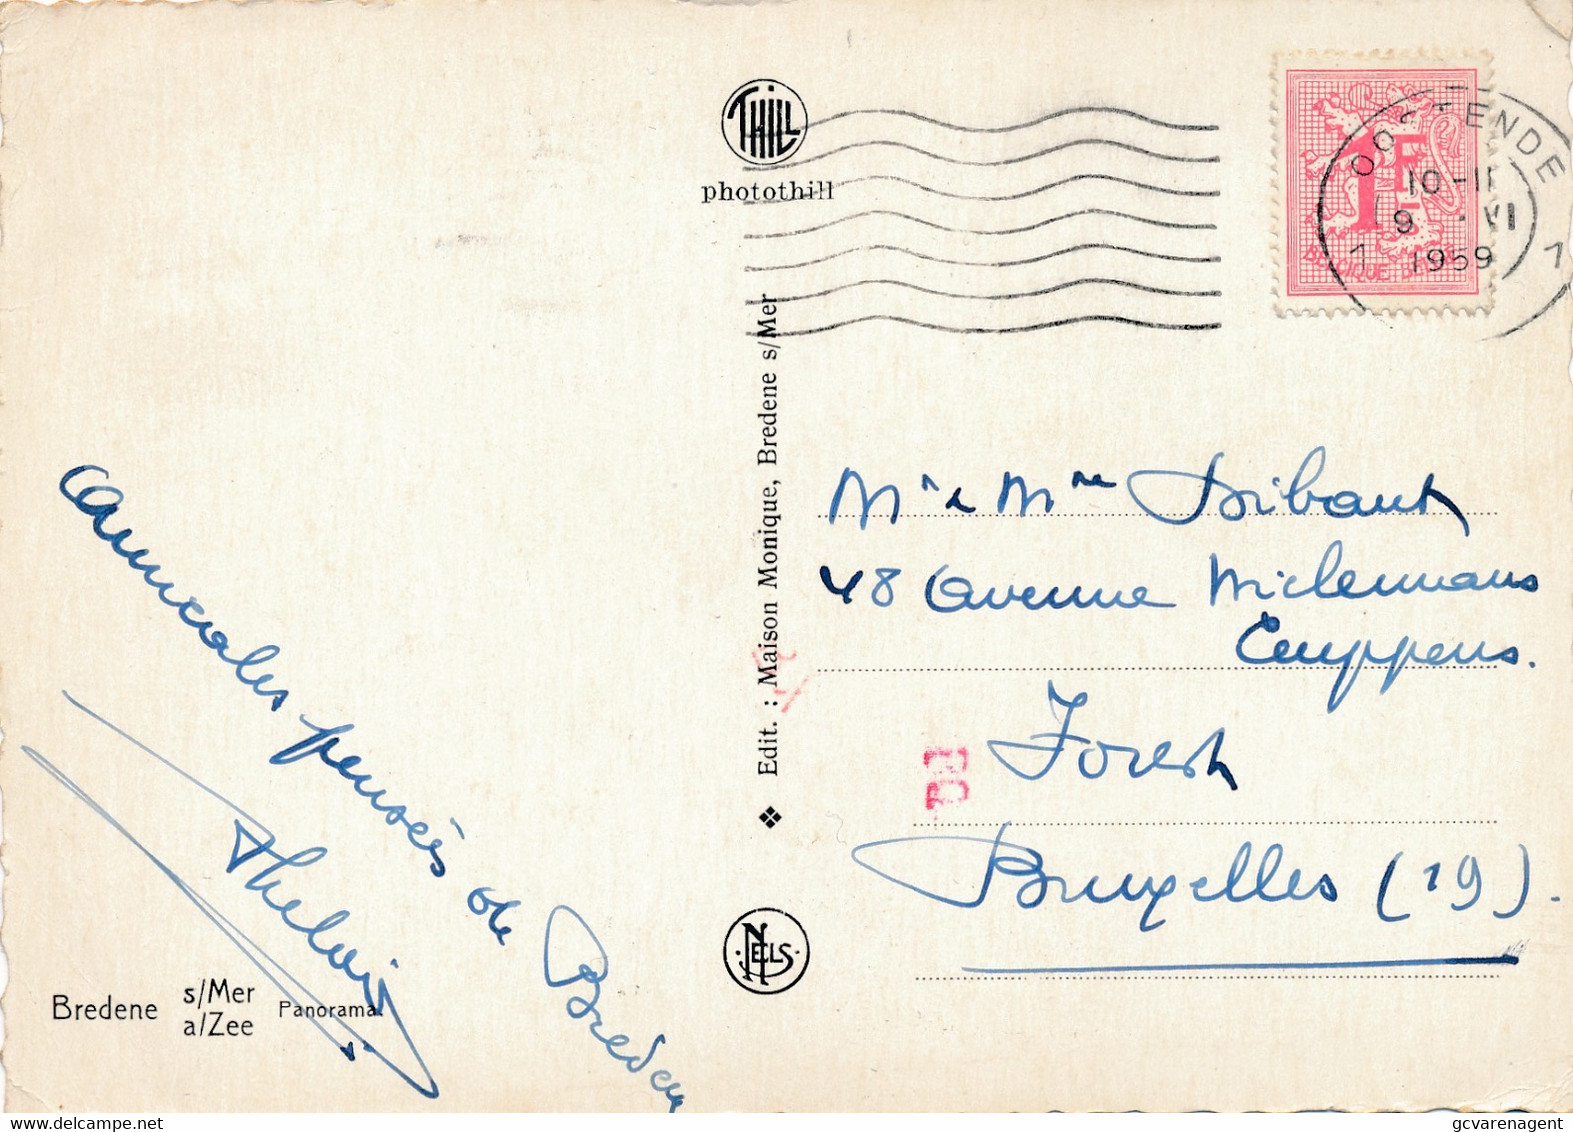 THILL
photothill
OOSTENDE
10-11
9 VI
1959
1 1
1F
BELGIQUE BELGIE
Edit. : Maison Monique, Bredene s/Mer
Mr & Mme
48 avenue
Forest
Bruxelles (19).
Amicales pensées de Bredene
NELS
Bredene s/Mer Panorama
a/Zee
gcvarenagent
delcampe.net